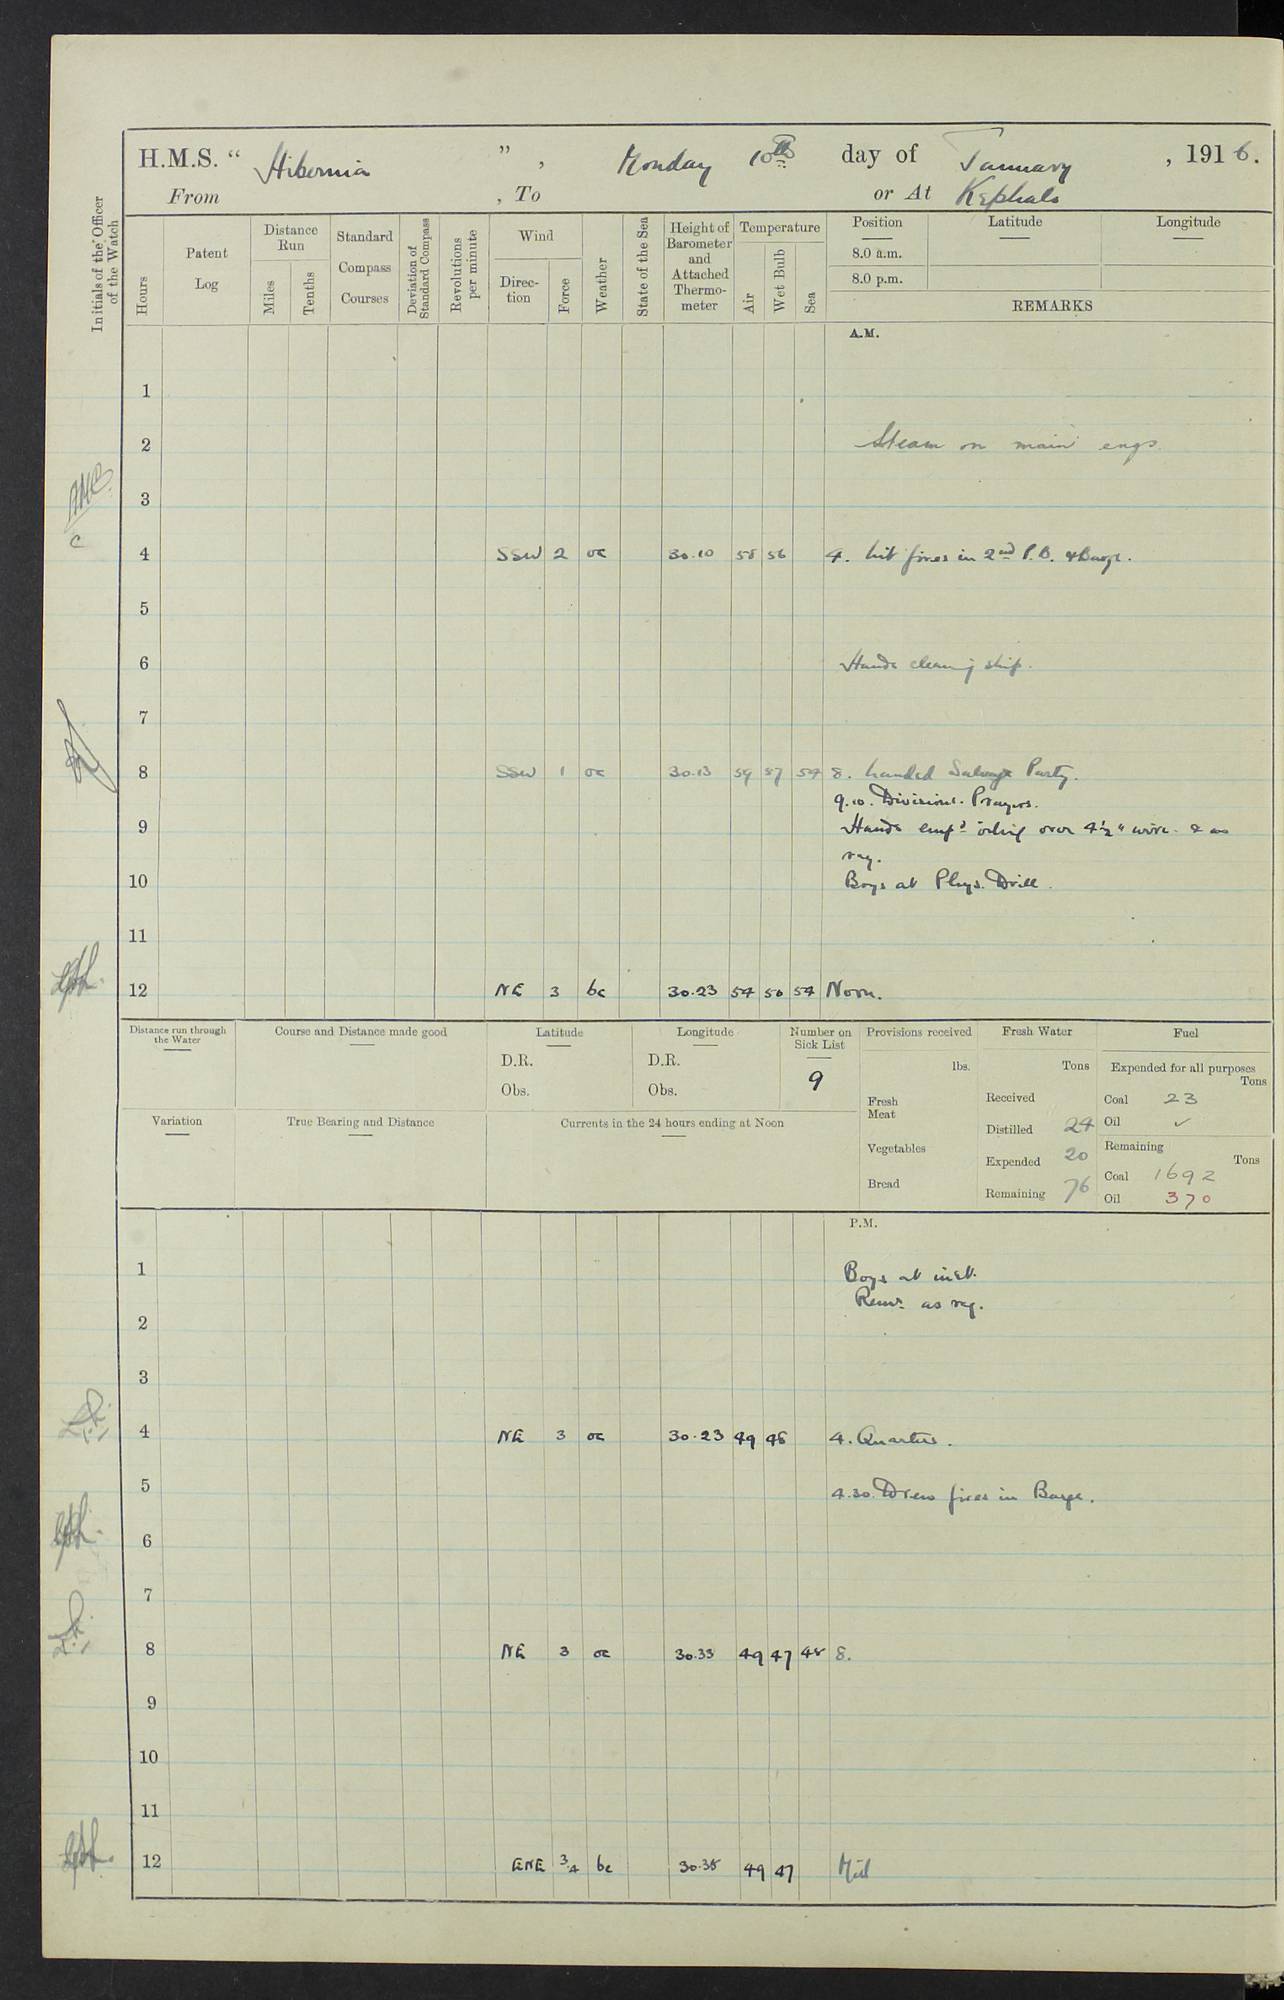 H.M.S. “ Hibernia ” , Monday 10th day of January , 1916.
From , To or At Kephalo
Initials of the Officer of the Watch
Hours
Patent Log
Distance Run
Miles
Tenths
Standard Compass Courses
Deviation of Standard Compass
Revolutions per minute
Wind
Direction
Force
Weather
State of the Sea
Height of Barometer and Attached Thermometer
Temperature
Air
Wet Bulb
Sea
Position Latitude Longitude
8.0 a.m.
8.0 p.m.
REMARKS
A.M.
1
2 Steam on main engs
3
4 SSW 2 oc 30.10 58 56 4. Lit fires in 2nd P.B. & Barge.
5
6 Hands cleaning ship.
7
8 SSW 1 oc 30.13 59 57 54 8. Landed Salvage Party.
9.10. Divisions. Prayers.
9 Hands emp'd oiling over 4½" wire. & as
req.
10 Boys at Phys. Drill.
11
12 NE 3 bc 30.23 54 50 54 Noon.
Distance run through the Water
Course and Distance made good
Latitude
D.R.
Obs.
Longitude
D.R.
Obs.
Number on Sick List
9
Provisions received
lbs.
Fresh Meat
Vegetables
Bread
Fresh Water
Tons
Received
Distilled 24
Expended 20
Remaining 76
Fuel
Expended for all purposes
Tons
Coal 23
Oil ✓
Remaining
Tons
Coal 1692
Oil 370
Variation
True Bearing and Distance
Currents in the 24 hours ending at Noon
P.M.
1 Boys at inst.
Remr as req.
2
3
4 NE 3 oc 30.23 49 48 4. Quarters.
5 4.30. Drew fires in Barge.
6
7
8 NE 3 oc 30.33 49 47 48 8.
9
10
11
12 ENE 3/4 bc 30.38 49 47 Mid